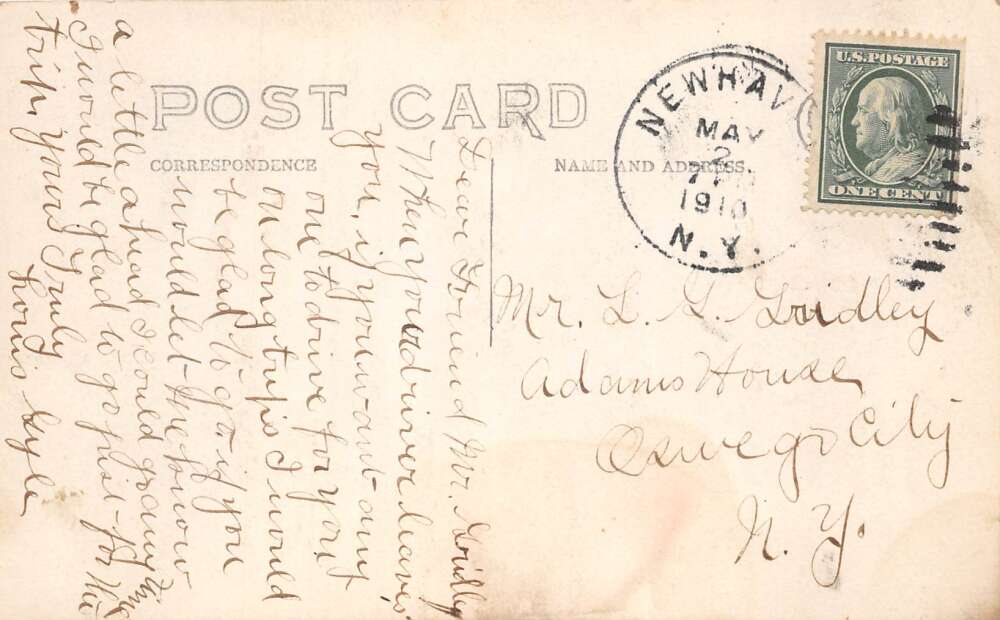 POST CARD
CORRESPONDENCE
NAME AND ADDRESS.
NEWHAV
MAY
2
1910
N.Y.
U.S.POSTAGE
ONE CENT
Mr. L. G. Gridley
Adams House
Oswego City
N. Y.
Dear Friend Mr. Gridley
When your driver leaves
you, if you want any
one to drive for you
on long trips I would
be glad to go if you
would let me know
a little ahead I could go any time
I would be glad to go just for the
trip. Yours Truly
Louis